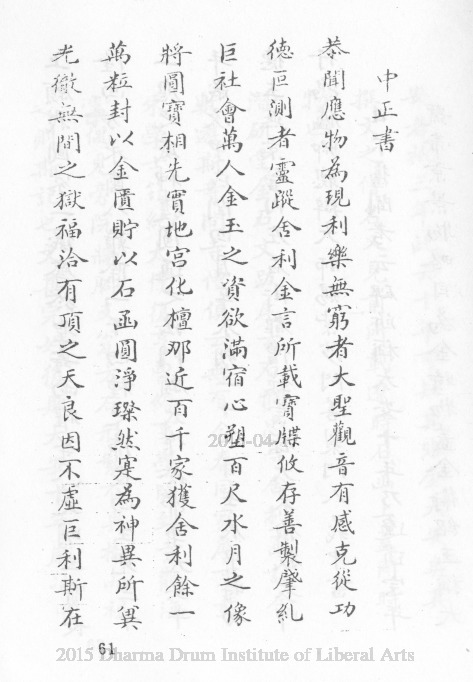 中正書
恭聞應物為現利樂無窮者大聖觀音有感克從功
德叵測者靈蹤舍利金言所載寶牒攸存善製肇糺
巨社會萬人金玉之資欲滿宿心塑百尺水月之像
將圓寶相先實地宮化檀那近百千家獲舍利餘一
萬粒封以金匱貯以石函圓淨璨然寔為神異所冀
光徹無間之獄福洽有頂之天良因不虛巨利斯在
61
2015 Dharma Drum Institute of Liberal Arts